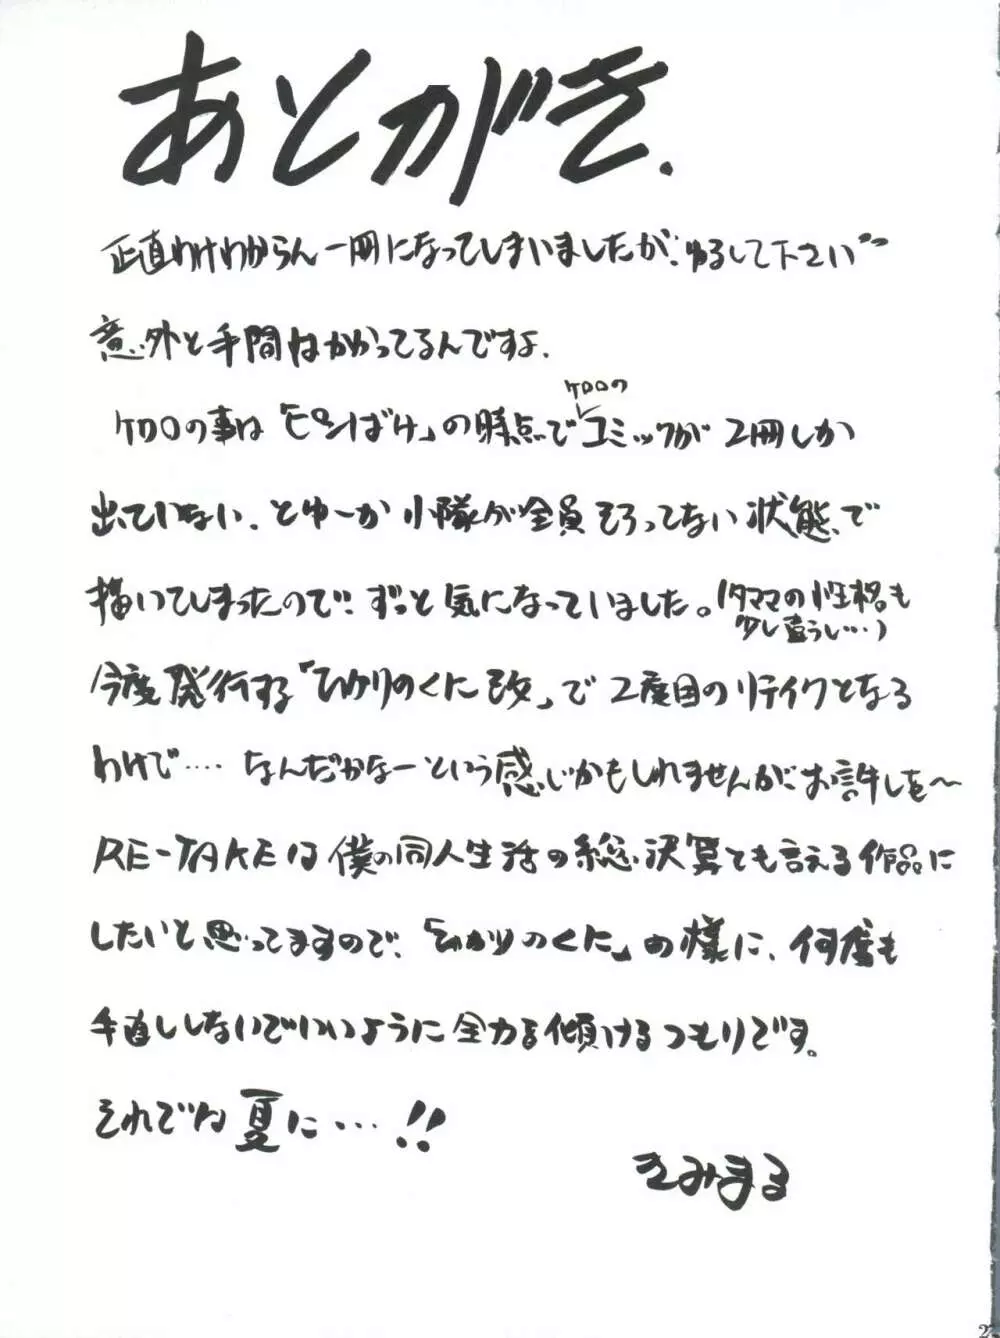 あとがき.
正直わけわからん一冊になってしまいましたが、ゆるして下さい〜
意外と手間はかかってるんですよ.
ケロロの事は「ピンぱけ」の時点で ケロロの コミックが 2冊しか
出ていない.とゆーか 小隊が全員そろってない状態で
描いてしまったので、ずっと気になっていました。(タママの性格も
少し違うし…)
今度発行する「ひかりのくに改」で 2度目のリテイクとなる
わけで…. なんだかなーという感じかもしれませんが、お許しを〜
RE-TAKEは僕の同人生活の総決算とも言える作品に
したいと思ってますので、「ひかりのくに」の様に、何度も
手直ししないでいいように全力を傾けるつもりです。
それでは夏に…!!
きみまる